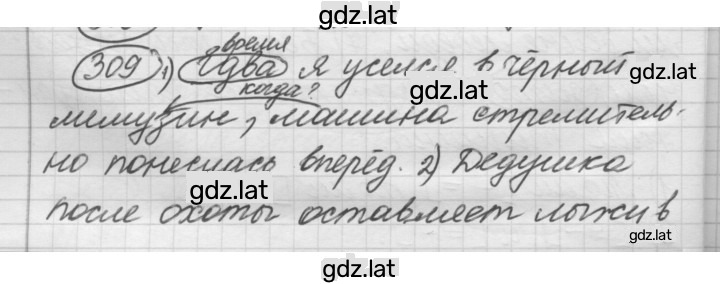 gdz.lat
время
309 1) Едва я уселся в чёрный
gdz.lat
когда?
gdz.lat
лимузин, машина стремитель-
но понеслась вперёд. 2) Дедушка
gdz.lat
после охоты оставляет лыжи в
gdz.lat
gdz.lat